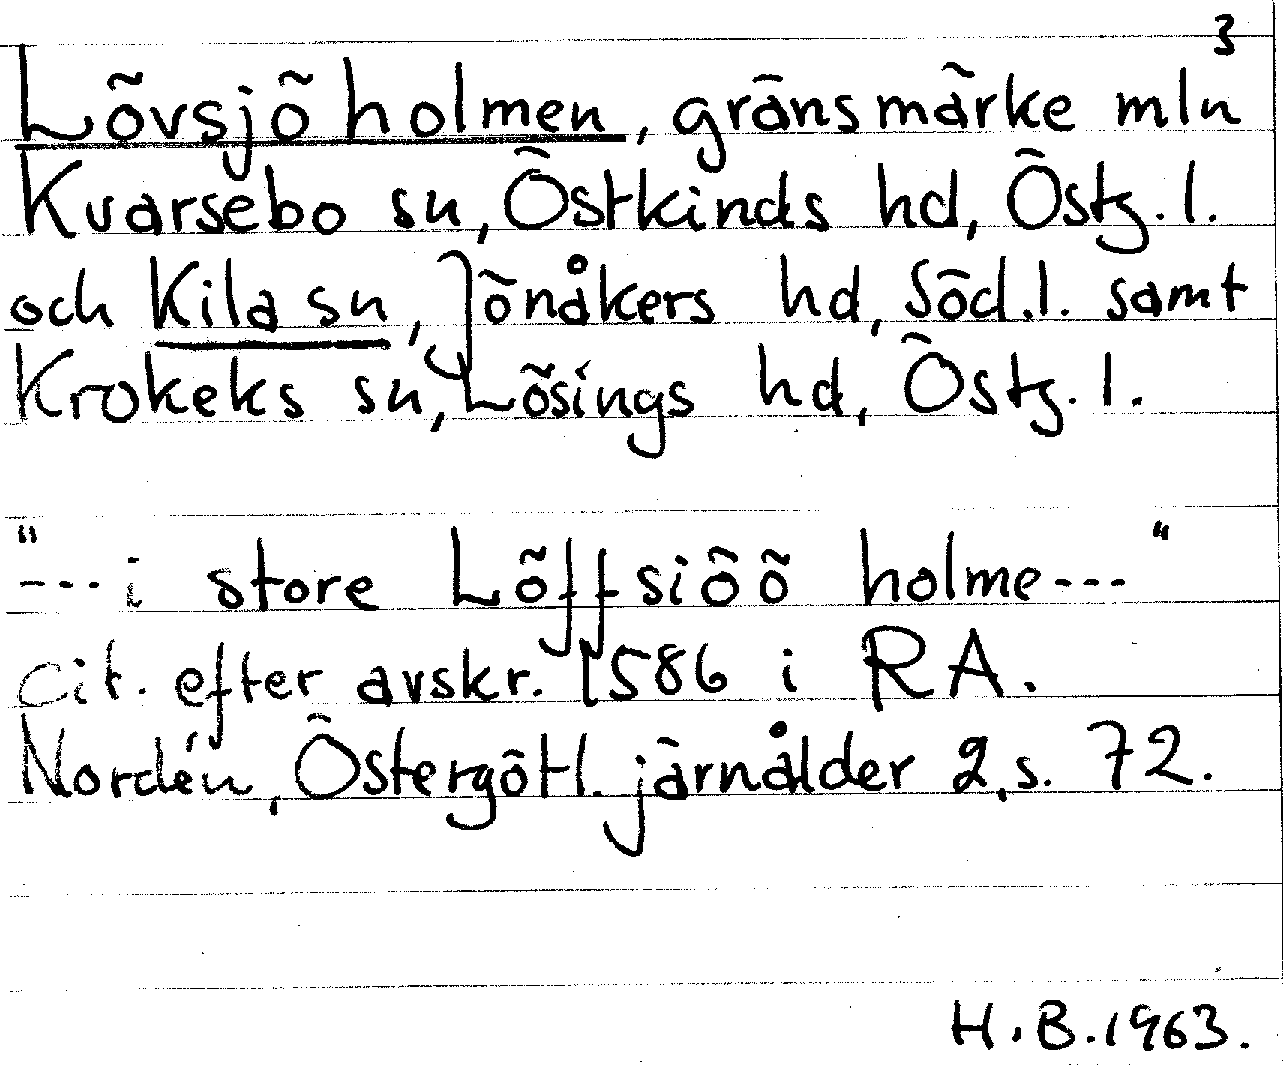 3
Lövsjöholmen, gränsmärke mln
Kvarsebo sn, Östkinds hd, Östg. l.
och Kila sn, Jönåkers hd, Söd.l. samt
Krokeks sn, Lösings hd, Östg. l.
"---i store Löffsiöö holme---"
cit. efter avskr. 1586 i RA.
Nordén, Östergötl. järnålder 2, s. 72.
H.B.1963.